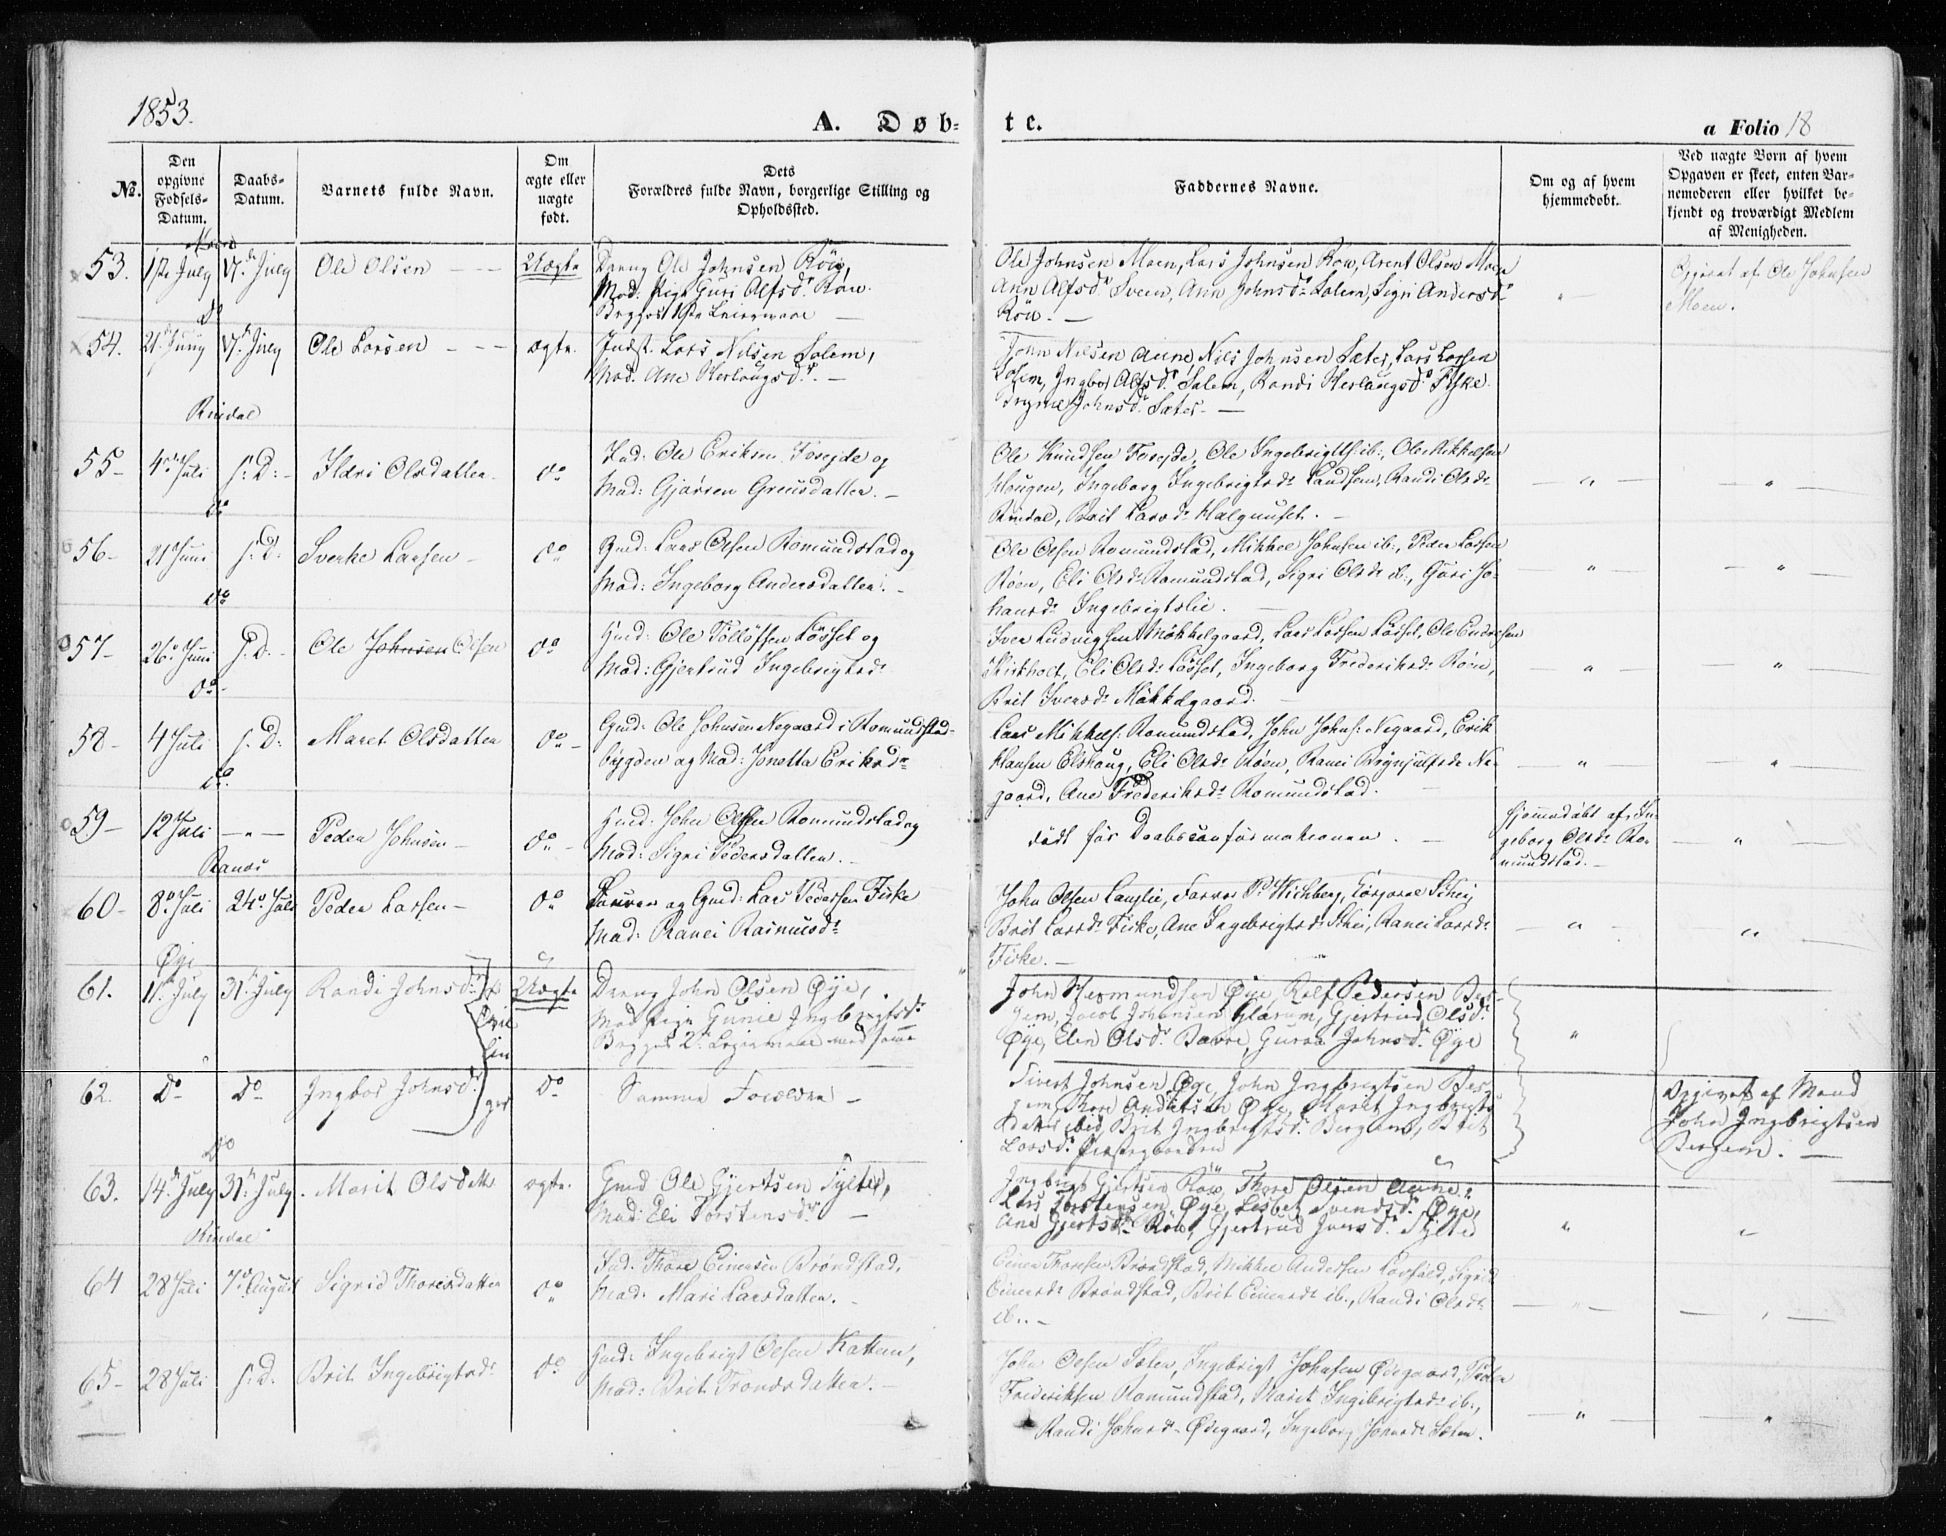 1853.
A. Døb-
te.
a Folio 18
No.
Den opgivne Fødsels-Datum.
Daabs-Datum.
Barnets fulde Navn.
Om ægte eller uægte født.
Dets Forældres fulde Navn, borgerlige Stilling og Opholdssted.
Faddernes Navne.
Om og af hvem hjemmedøbt.
Ved uægte Børn af hvem Opgaven er skeet, enten Barnemoderen eller hvilket bekjendt og troværdigt Medlem af Menigheden.
53. 1ste July 17de July Ole Olsen Uægte
Dreng Ole Johnsen Röv,
Mod: Pige Guri Alfsdr Röv.
Begges 1ste Leiermaal
Ole Johnsen Moen, Lars Johnsen Röv, Arent Olsen Moen
Ann Alfsdr Sveen, Ann Johnsdr Solem, Sigri Andersdr
Röv.
Opgivet af Ole Johnsen
Moen.
Do
54. 21 Juny 17de July Ole Larsen ægte.
Indst. Lars Nilsen Solem,
Mod. Ane Herlaugsdr.
John Nilsen Aune, Nils Johnsen Sæter, Lars Larsen
Solem, Ingbor Alfsdr Solem, Randi Herlaugsdr Fiske
Johnsdr Sæter
Rindal
55 4de Juli s. D: Ildri Olsdatter do
Ole Eriksen Foseide og
Mod: Gjørren Greusdatter.
Ole Knudsen Foseide, Ole Ingebrigts. ib:, Ole Mikkelsen
Haugen, Ingeborg Ingebrigtsdr Landsem, Randi Olsdr
Rindal, Brit Larsdr Halgunset.
do
56 21 Juni s. D: Sverke Larsen do
Gmd: Lars Olsen Romundstad og
Mod: Ingeborg Andersdatter.
Ole Olsen Romundstad, Mikkel Johnsen ib:, Peder Larsen
Røen, Eli Olsdr Romundstad, Sigri Olsdr ib., Guri Jo-
hansdr Ingebrigtslie.
do
57 26. Juni s. D. Ole Johnsen Olsen do
Gmd: Ole Tolløfsen Løsset og
Mod: Gjertrud Ingebrigtsdr
Iver Ludvigsen Møkkelgaard, Lars Larsen Løsset, Ole Endresen
Kirkholt, Eli Olsdr Løsset, Ingeborg Frederiksdr Røen,
Brit Iversdr Møkkelgaard.
do
58 4 Juli s. D: Maret Olsdatter do
Gmd: Ole Johnsen Negaard i Romundstad-
bygden og Mod: Jonetta Eriksdr
Lars Mikkels. Romundstad, John Johns. Negaard, Erik
Hansen Elshaug, Eli Olsdr Røen, Ranei Brynjulfsdr Ne-
gaard, Ane Frederiksdr Romundstad.
do
59 12 Juli Peder Johnsen do
Gmd: John Olsen Romundstad og
Mod: Sigri Pedersdatter.
død før Daabsconfirmationen.
hjemmedøbt af In-
geborg Olsdr Ro-
mundstad.
Ranæs
60 8de Juli 24de Juli Peder Larsen do
og Gmd: Lars Pedersen Fiske
Mod: Ranei Rasmusdr
John Olsen Langlie, Farver P. Wichberg, Torger Schei,
Brit Larsdr Fiske, Ane Ingebrigtsdr Schei, Ranei Larsdr
Fiske.
Øye
61. 11 July 31 July Randi Johnsdr Uægte
Tvillinger
Dreng John Olsen Øye,
Mod Pige Gunil Ingbrigtsdr
Begges 2det Leiermaal med samme
John Hermundsen Øye, Rolf Pedersen Ber-
gem, Jacob Johansen Glærum, Gjertrud Olsdr
Øye, Elen Olsdr Bævre, Guraa Johnsdr Øye
62. Do Do Ingbor Johnsdr Do
Samme Forældre
Sivert Johnsen Øye, John Ingbrigtsen Ber-
gem, Thore Andersen Øye, Marit Ingbrigts
datter ibid, Brit Ingbrigtsdr Bergem, Brit
Larsdr Præstegaarden
Opgivet af Mand
John Ingbrigtsen
Bergem.
Do
63. 14. July 31. July Marit Olsdatter ægte.
Gmd Ole Gjertsen Sylte,
Mod: Eli Torstensdr
Ingbrigt Gjertsen Röv, Thore Olsen Aune,
Lars Torstensen Øye, Lisbet Svendsdr Øye,
Ane Gjertsdr Röv, Gjertrud Iversdr Sylte
Rindal
64 28 Juli 7de August Sigrid Thoresdatter do
Thore Einersen Brøndstad,
Mod: Mari Larsdatter.
Einer Thoresen Brøndstad, Mikkel Andersen Løvfald, Sigrid
Einersdr Brøndstad, Brit Einersdr ib., Randi Olsdr
ib.
65 28 Juli s. D. Brit Ingebrigtsdr do
Gmd: Ingebrigt Olsen Kattem,
Mod: Brit Trondsdatter.
John Olsen Sæter, Ingebrigt Johnsen Ødegaard, Peder
Frederiksen Romundstad, Marit Ingebrigtsdr ib.,
Randi Johnsdr Ødegaard, Ingeborg Johnsdr Sæter.